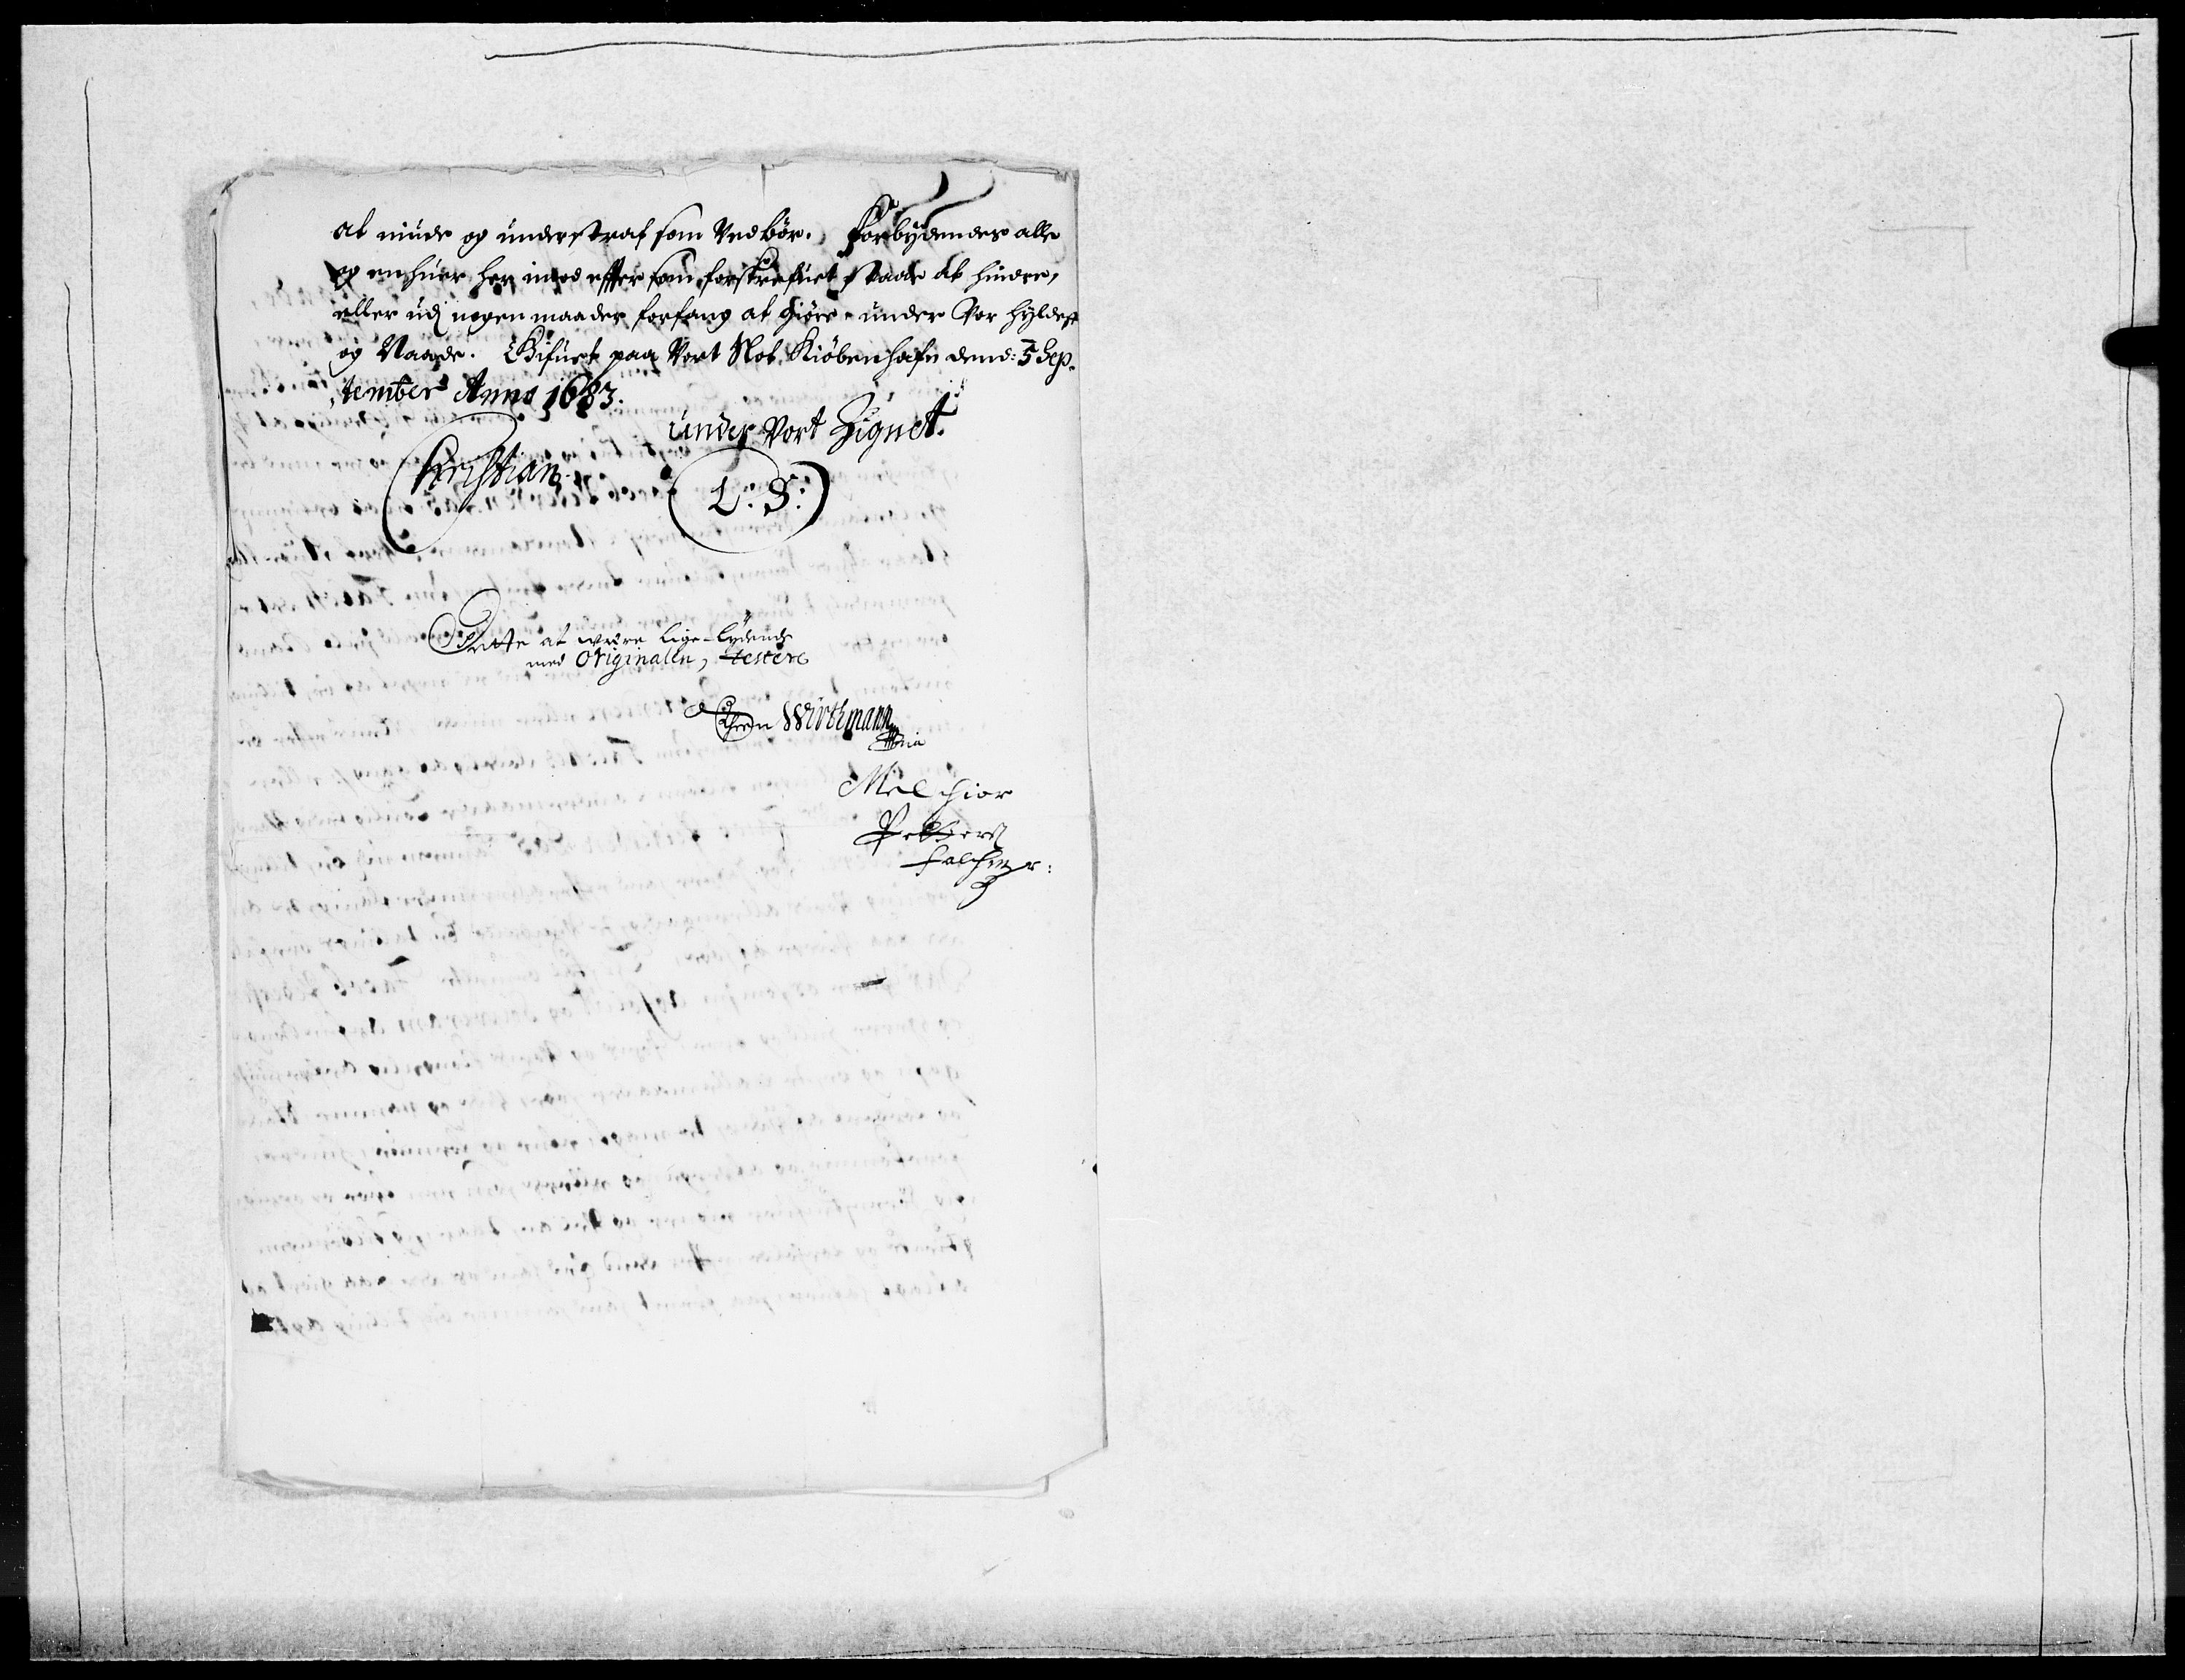 at niude og understraf som Vedbör. Forbydendes alle
og enhuer her imod effter som forskrefuet staar at hindre,
eller udj nogen maader forfang at giöre under Vor hyldest
og Naade. Gifuet paa Vort Slot Kiöbenhafn dend: 5 Sep-
tember Anno 1683.
under Vort Zignet.
Christian
L: S:
Dette at were lige-lydende
med Originalen, testere
Wirthmann
Mria
Melchior
Pettersz
Falchner: